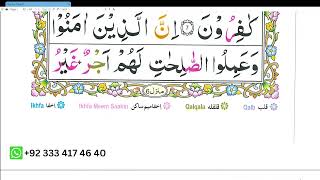 كٰفِرُوْنَ ۝٧ اِنَّ الَّذِيْنَ اٰمَنُوْا
وَعَمِلُوا الصّٰلِحٰتِ لَهُمْ اَجْرٌ غَيْرُ
منزل ٦
Ikhfa اخفا Ikhfa Meem Saakin اخفا میم ساکن Qalqala قلقله Qalb قلب
+92 333 417 46 40